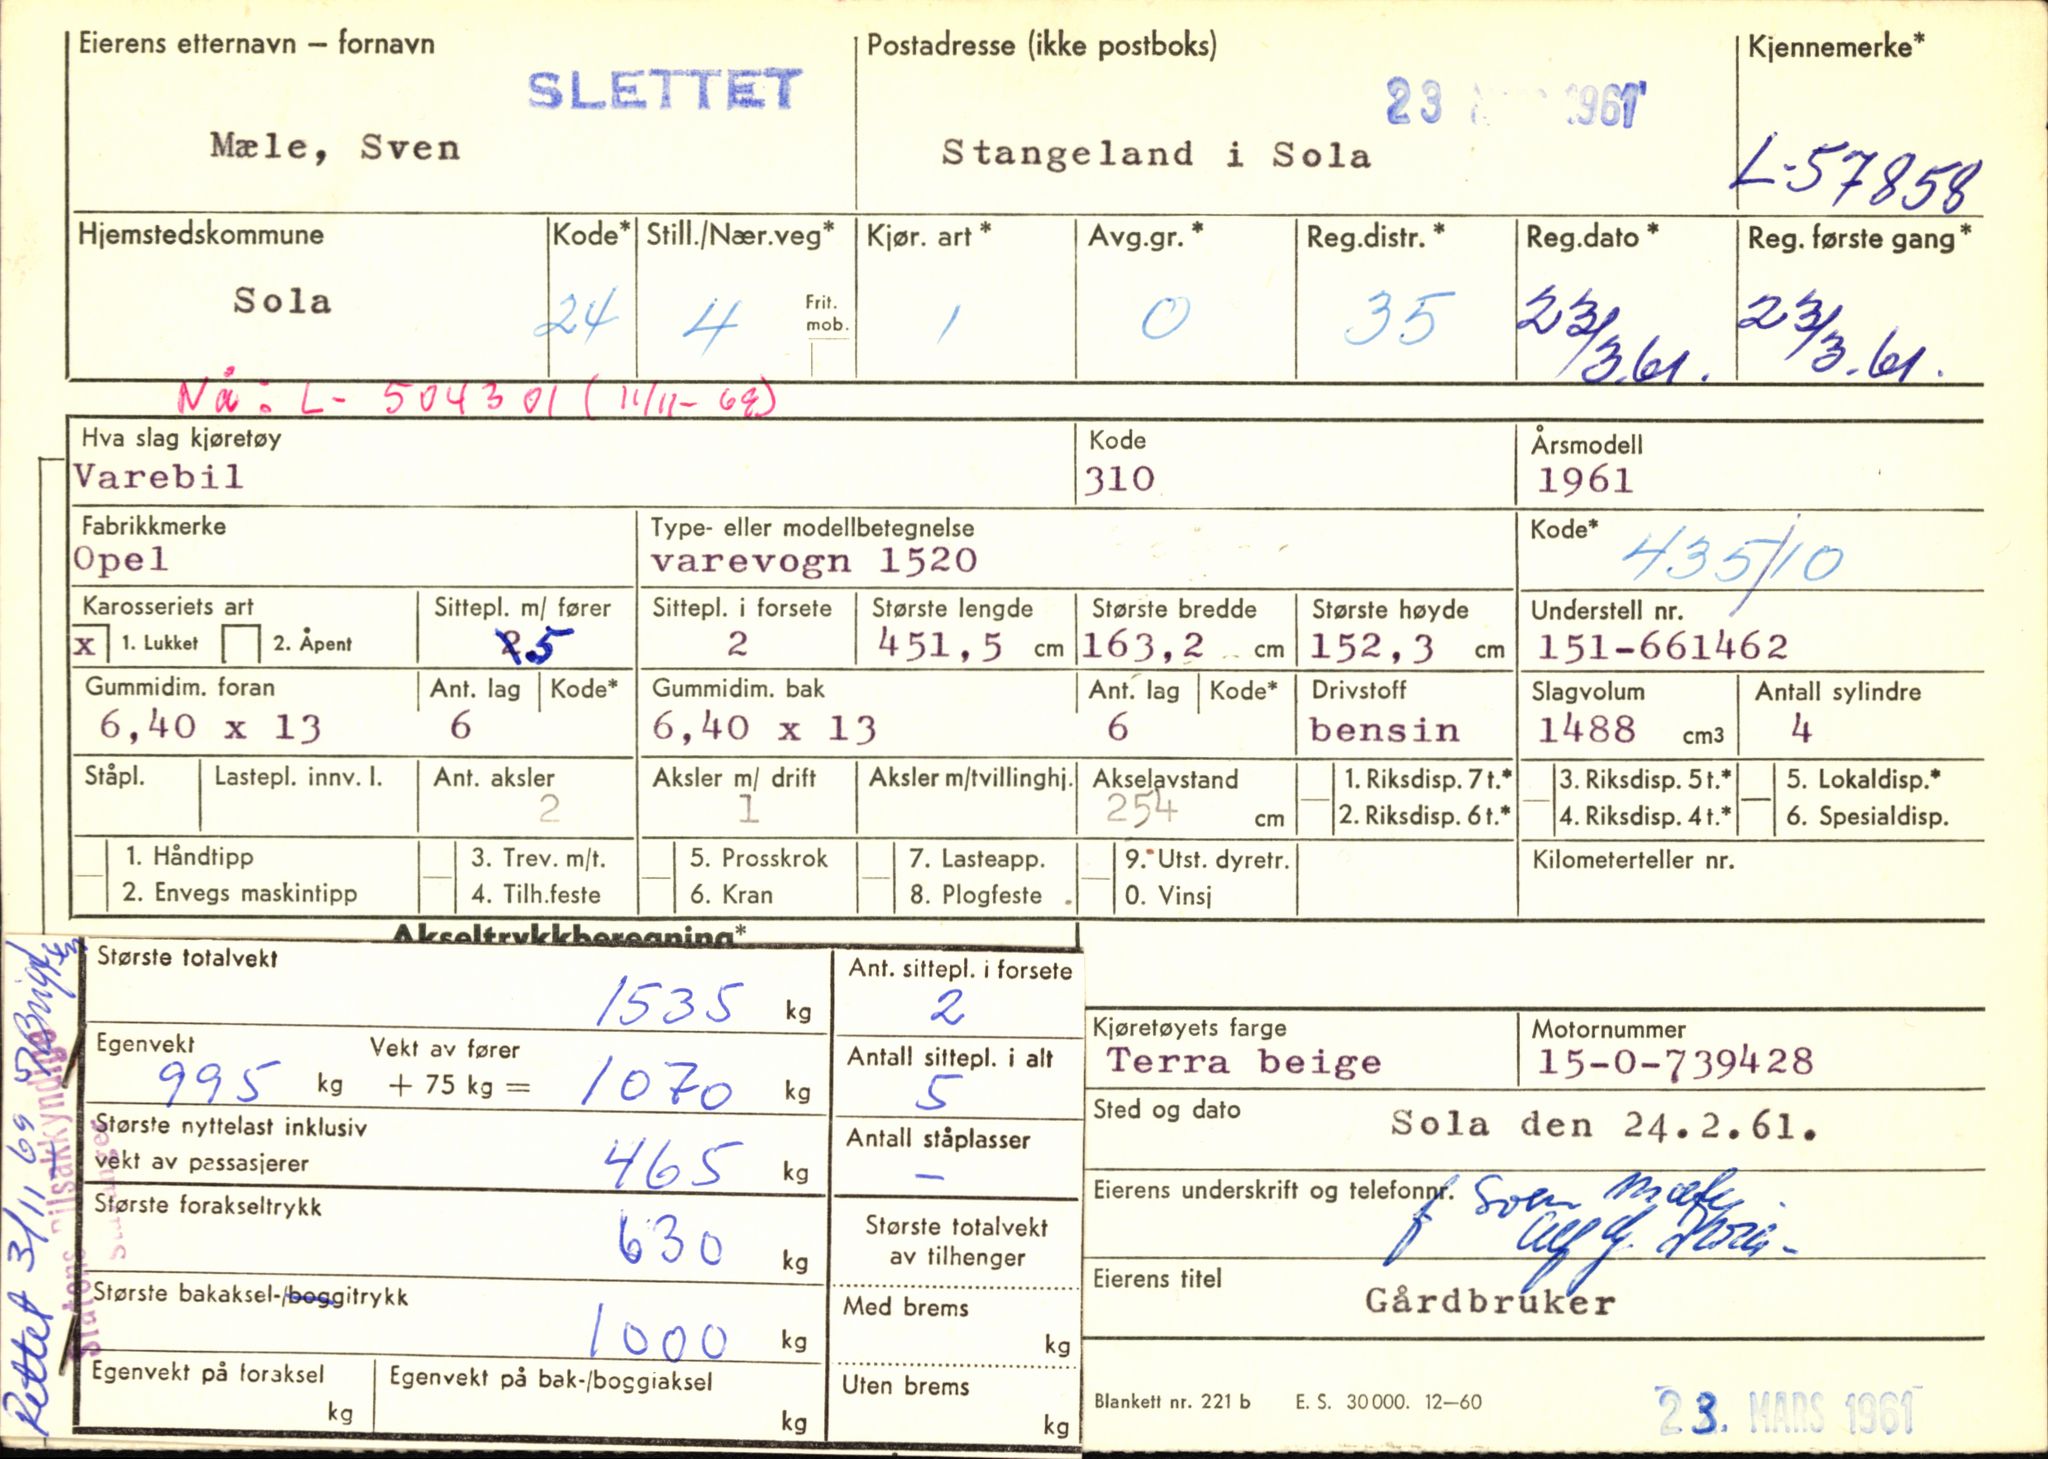 Eierens etternavn – fornavn
SLETTET
Mæle, Sven
Postadresse (ikke postboks)
23 1961
Stangeland i Sola
Kjennemerke*
L-57858
Hjemstedskommune
Sola
Kode*
24
Still./Nær.veg*
4
Frit. mob.
Kjør. art*
1
Avg.gr.*
0
Reg.distr.*
35
Reg.dato*
23/3.61.
Reg. første gang*
23/3.61.
Nå: L- 504301 (11/11-69)
Hva slag kjøretøy
Varebil
Kode
310
Årsmodell
1961
Fabrikkmerke
Opel
Type- eller modellbetegnelse
varevogn 1520
Kode*
435/10
Karosseriets art
x 1. Lukket 2. Åpent
Sittepl. m/ fører
2 5
Sittepl. i forsete
2
Største lengde
451,5 cm
Største bredde
163,2 cm
Største høyde
152,3 cm
Understell nr.
151-661462
Gummidim. foran
6,40 x 13
Ant. lag
6
Kode*
Gummidim. bak
6,40 x 13
Ant. lag
6
Kode*
Drivstoff
bensin
Slagvolum
1488 cm3
Antall sylindre
4
Ståpl.
Lastepl. innv. l.
Ant. aksler
2
Aksler m/ drift
1
Aksler m/tvillinghj.
Akselavstand
254 cm
1. Riksdisp. 7 t.*
2. Riksdisp. 6 t.*
3. Riksdisp. 5 t.*
4. Riksdisp. 4 t.*
5. Lokaldisp.*
6. Spesialdisp.
1. Håndtipp
2. Envegs maskintipp
3. Trev. m/t.
4. Tilh.feste
5. Prosskrok
6. Kran
7. Lasteapp.
8. Plogfeste
9. Utst. dyretr.
0. Vinsj
Kilometerteller nr.
Akseltrykkberegning*
Største totalvekt
1535 kg
Ant. sittepl. i forsete
2
Egenvekt
995 kg
Vekt av fører
+ 75 kg = 1070 kg
Antall sittepl. i alt
5
Største nyttelast inklusiv
vekt av passasjerer
465 kg
Antall ståplasser
–
Største forakseltrykk
630 kg
Største totalvekt
av tilhenger
Største bakaksel-/boggitrykk
1000 kg
Med brems
kg
Egenvekt på foraksel
kg
Egenvekt på bak-/boggiaksel
kg
Uten brems
kg
Rettet 3/11 69
Statens bilsakkyndige
Stavanger
Kjøretøyets farge
Terra beige
Motornummer
15-0-739428
Sted og dato
Sola den 24.2.61.
Eierens underskrift og telefonnr.
f Sven Mæle
Eierens titel
Gårdbruker
Blankett nr. 221 b E. S. 30 000. 12–60
23. MARS 1961